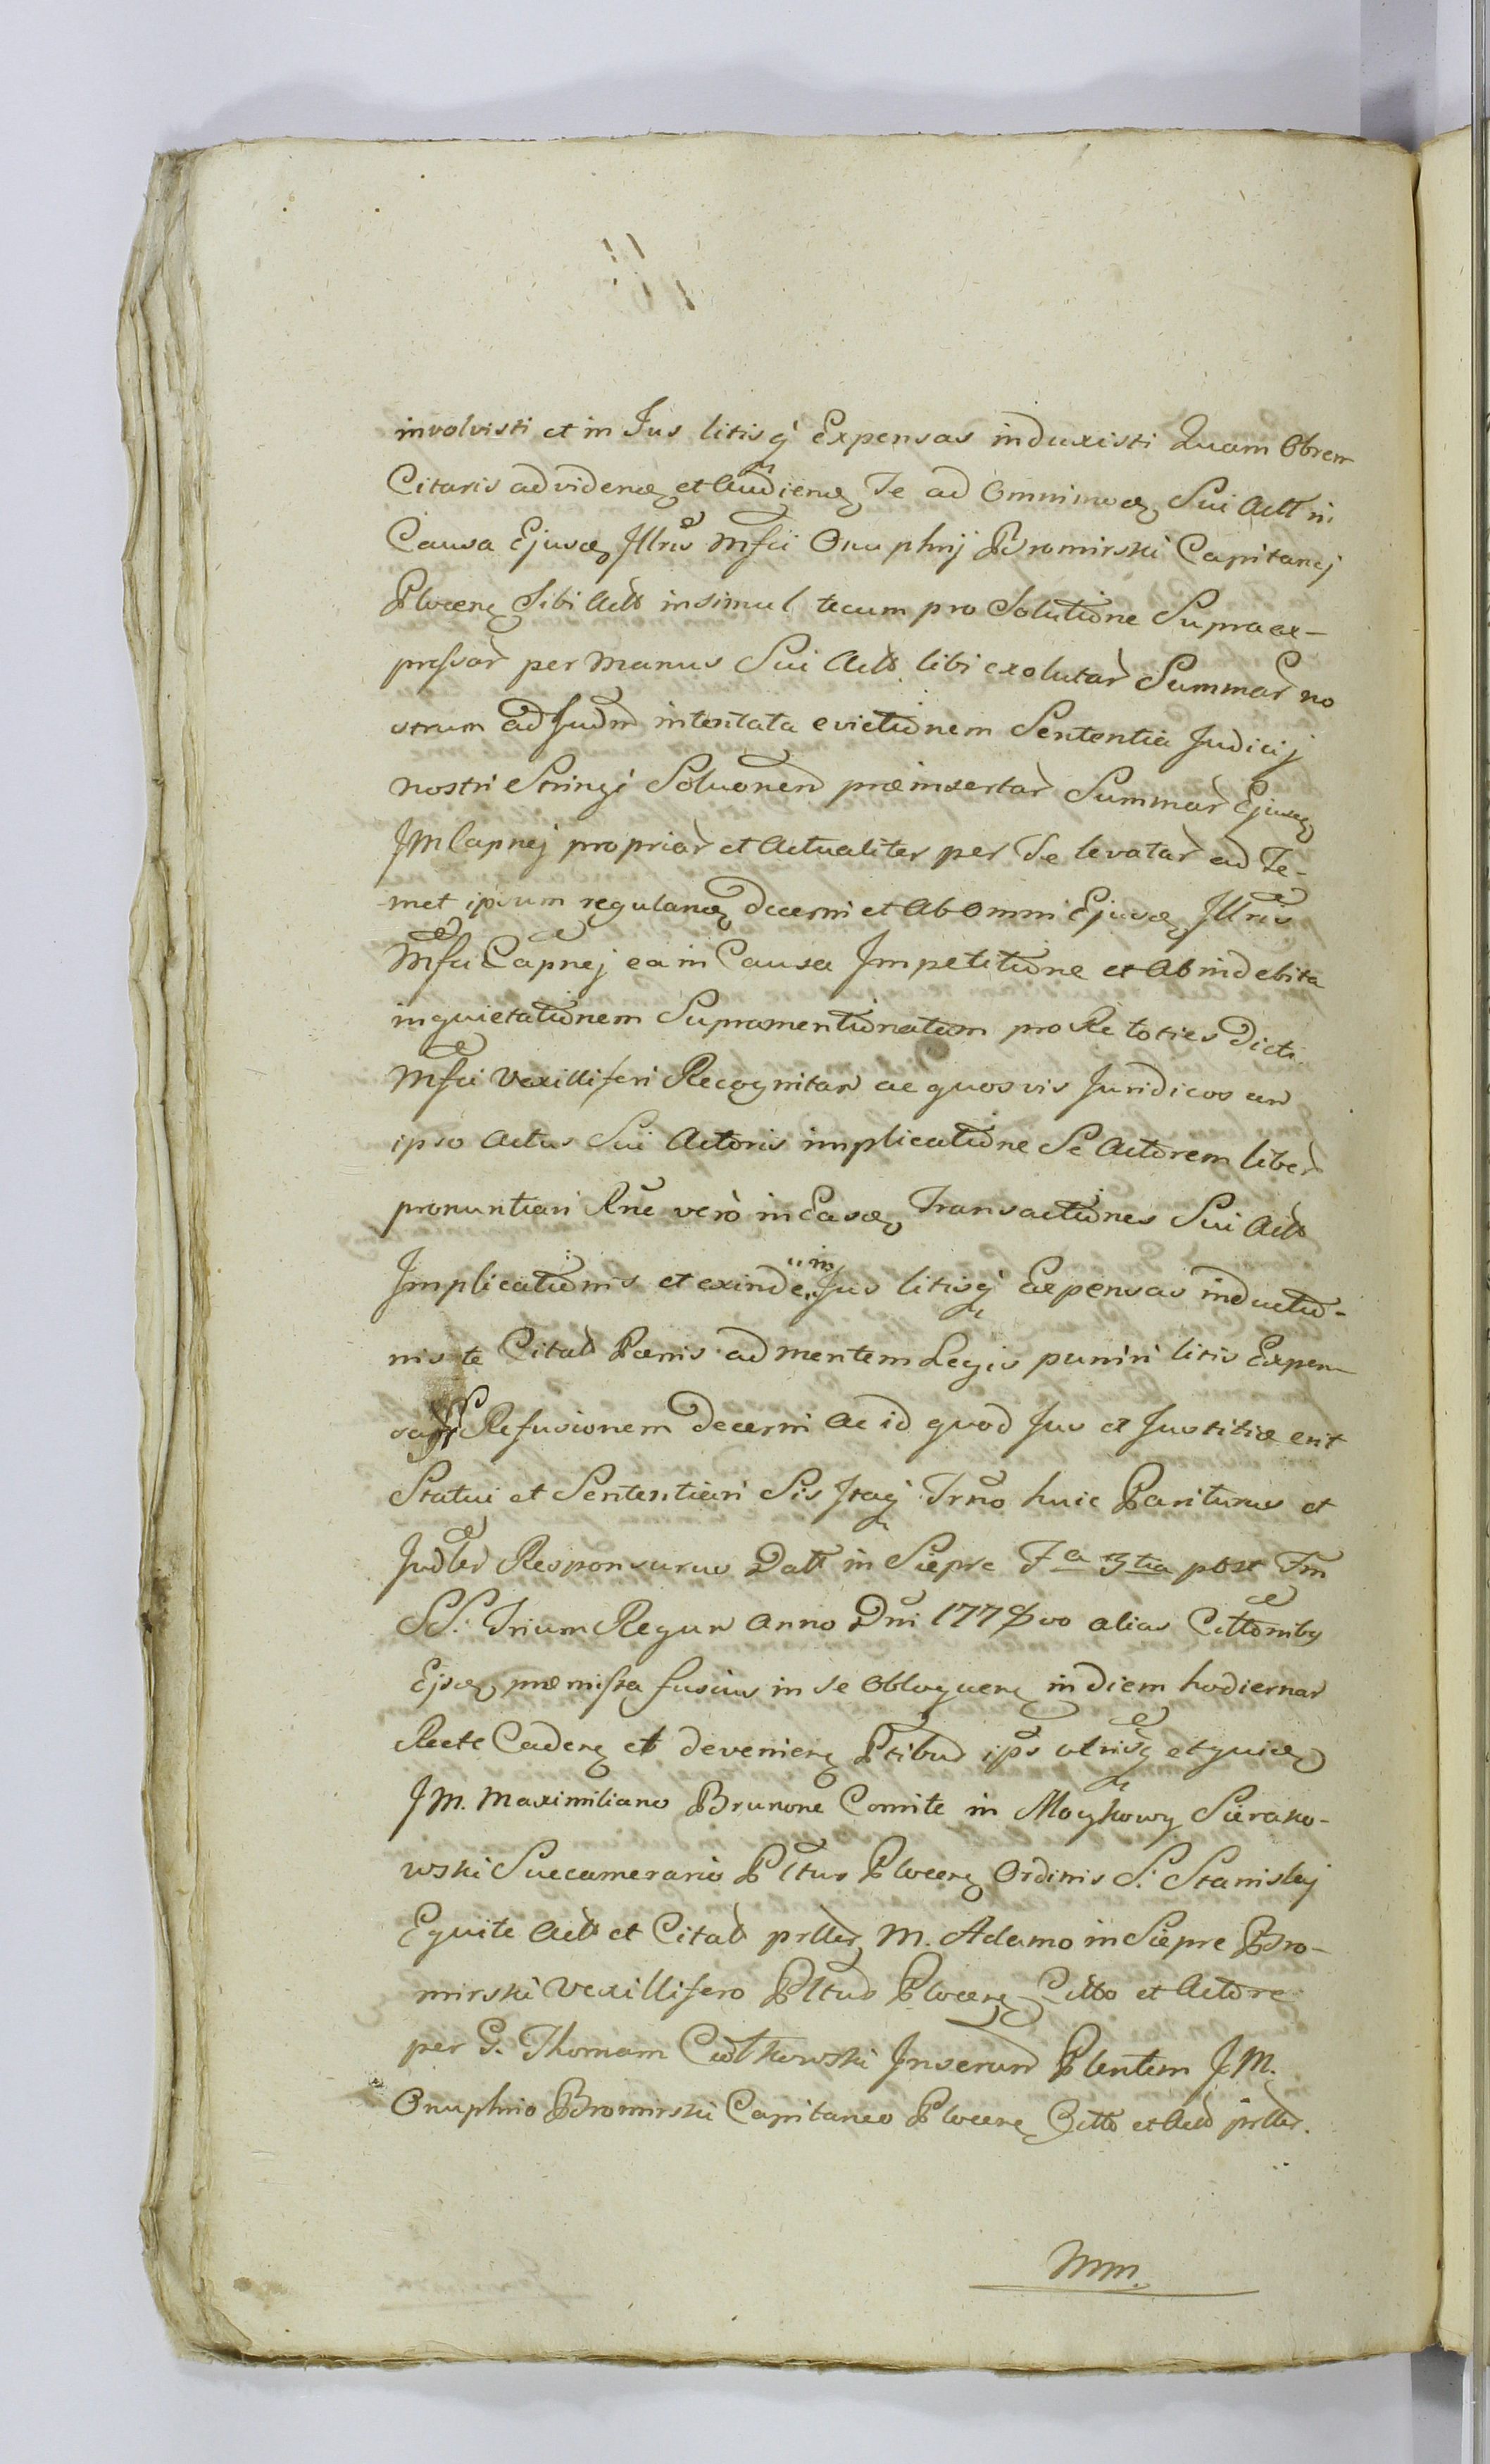 involvisti et in Jus litisq Expensas induxisti Quam Obrem
Citaris ad videnđ et Audienđ Te ad Omnimođ Sui Actt in
Causa Ejusđ Jllris Mfci Onuphrij Bromirski Capitanej
Plocenę sibi Actt insimul tecum pro Solutione Supraex-
pressar per Manus Sui Actt tibi exolutar Summar no
strum ad Judm intentata evictionem Sententia Judicij
nostri Stringi Soluonem præinsertar Summar Ejusđ
JM Capnej propriar et Actualiter per Te levatar ad Te-
met ipsum regulanđ decerni et Ab Omni Ejusđ Jllris
Mfci Capnej ea in Causa Jmpetitione et Ab indebita
inquietationem Supramentionatam pro Re toties Dicti
Mfci Vexilliferi Recognitar ac quosvis Juridicos
ipso Actus Sui Actoris implicatione Se Actorem liber
pronuntiari Rne vero in Easđ Transactiones Sui Actt
Jmplicationis et exinde in Jus litisq Expensas inductio-
nis te Citatt Pœnis ad mentem Legis puniri litis Expen-
sar Refusionem Decerni Ac id quod Jus et Justitia erit
Statui et Sententiari Sis Jtaq Trno huic Pariturus et
Judler Responsurus Datt in Siepre Fa 3tia post Fm
SS. Trium Regum Anno Dni 1778vo alias Cittonibq
Ejsđ præmissa fusius in se Obloquenę in diem hodiernar
Recte Cadenę et devenienę Ptibus ips utrisq et quiđ
JM. Maximiliano Brunone Comite in Moykowy Sierako-
wski Succamerario Pltus Plocenę Ordinis S. Stanislaj
Equite Actt et Citatt prller M. Adamo in Siepre Bro-
mirski Vexillifero Pltus Plocenę Citto et Actore
per G. Thomam Ciółkowski Jnserum Plentem JM.
Onuphrio Bromirski Capitaneo Plocenę Citto et Actt prller.
Mm.